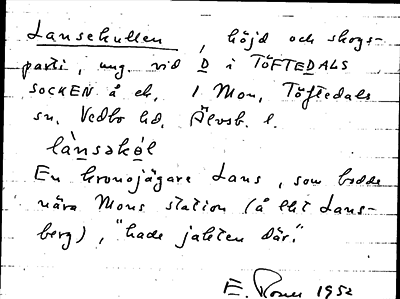 Lansekullen, höjd och skogs-
parti, ung. vid D i TÖFTEDALS
SOCKEN å ek, 1 Mon, Töftedals
sn, Vedbo hd, Älvsb. l.
lànsəkól
En kronojägare Lans, som bodde
nära Mons station (å ekt Lans-
berg), "hade jakten där."
E. 1952